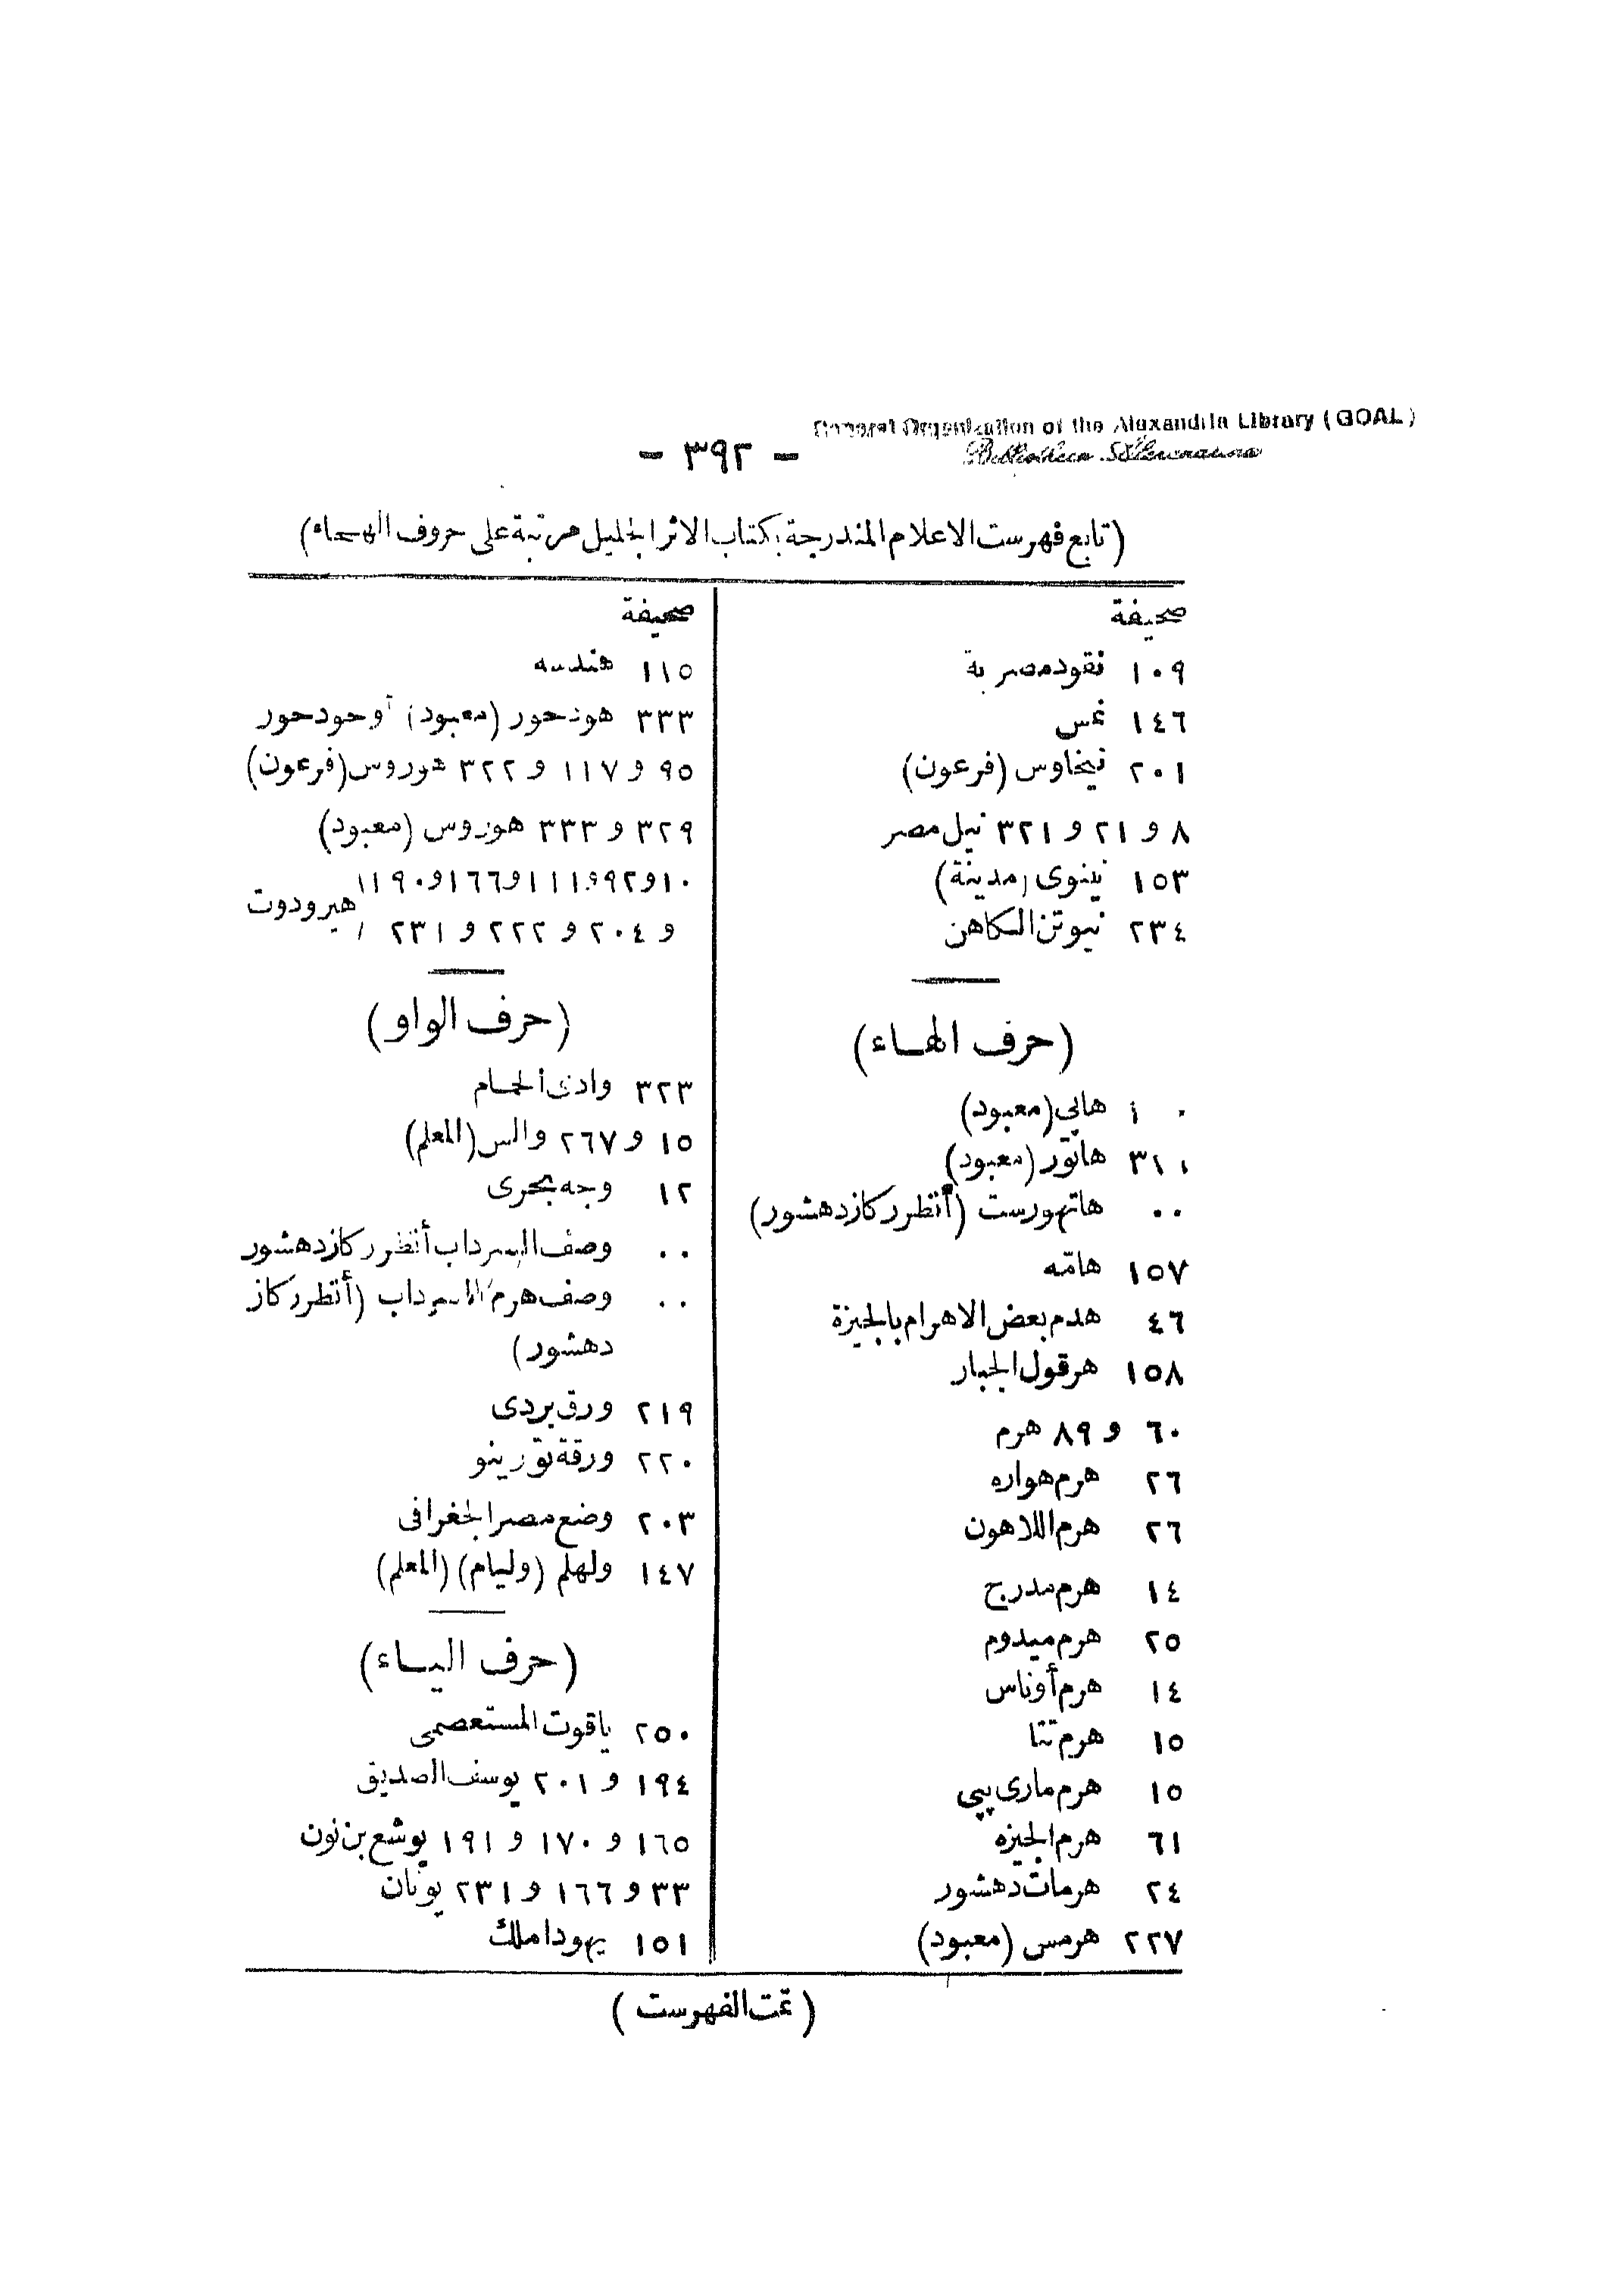 General Organization of the Alexandria Library (GOAL)
Bibliotheca Alexandrina
- ٣٩٢ -
(تابع فهرست الاعلام المندرجة بكتاب الاثر الجليل مرتبة على حروف الهجاء)
صحيفة
١٠٩ نقود مصرية
١٤٦ نمس
٢٠١ نيخاوس (فرعون)
٨ و ٢١ و ٣٢١ نيل مصر
١٥٣ نينوى (مدينة)
٢٣٤ نيوتن الكاهن
(حرف الهاء)
هابي (معبود)
هاتور (معبود)
٠٠ هاتهورست (أنظر ركاز دهشور)
١٥٧ هامّه
٤٦ هدم بعض الاهرام بالجيزة
١٥٨ هرقول الجبار
٦٠ و ٨٩ هرم
٢٦ هرم هواره
٢٦ هرم اللاهون
١٤ هرم مدرج
٢٥ هرم ميدوم
١٤ هرم أوناس
١٥ هرم تتا
١٥ هرم مارى پپى
٦١ هرم الجيزه
٢٤ هرمات دهشور
٢٢٧ هرمس (معبود)
صحيفة
١١٥ هندسه
٣٣٣ هودحور (معبود) أو حودحور
٩٥ و ١١٧ و ٣٢٢ هوروس (فرعون)
٣٢٩ و ٣٣٣ هوروس (معبود)
١٠ و ٩٢ و ١١١ و ١٦٦ و ١٩٠
هيرودوت
و ٢٠٤ و ٢٢٢ و ٢٣١
(حرف الواو)
٣٢٣ وادى الحمام
١٥ و ٢٦٧ والس (المعلم)
١٢ وجه بحرى
٠٠ وصف السرداب أنظر ركاز دهشور
٠٠ وصف هرم السرداب (أنظر ركاز
دهشور)
٢١٩ ورق بردى
٢٢٠ ورقة تورينو
٢٠٣ وضع مصر الجغرافى
١٤٧ ولهلم (وليام) (المعلم)
(حرف الياء)
٢٥٠ ياقوت المستعصمى
١٩٤ و ٢٠١ يوسف الصديق
١٦٥ و ١٧٠ و ١٩١ يوشع بن نون
٣٣ و ١٦٦ و ٢٣١ يونان
١٥١ يهودا ملك
(تمت الفهرست)